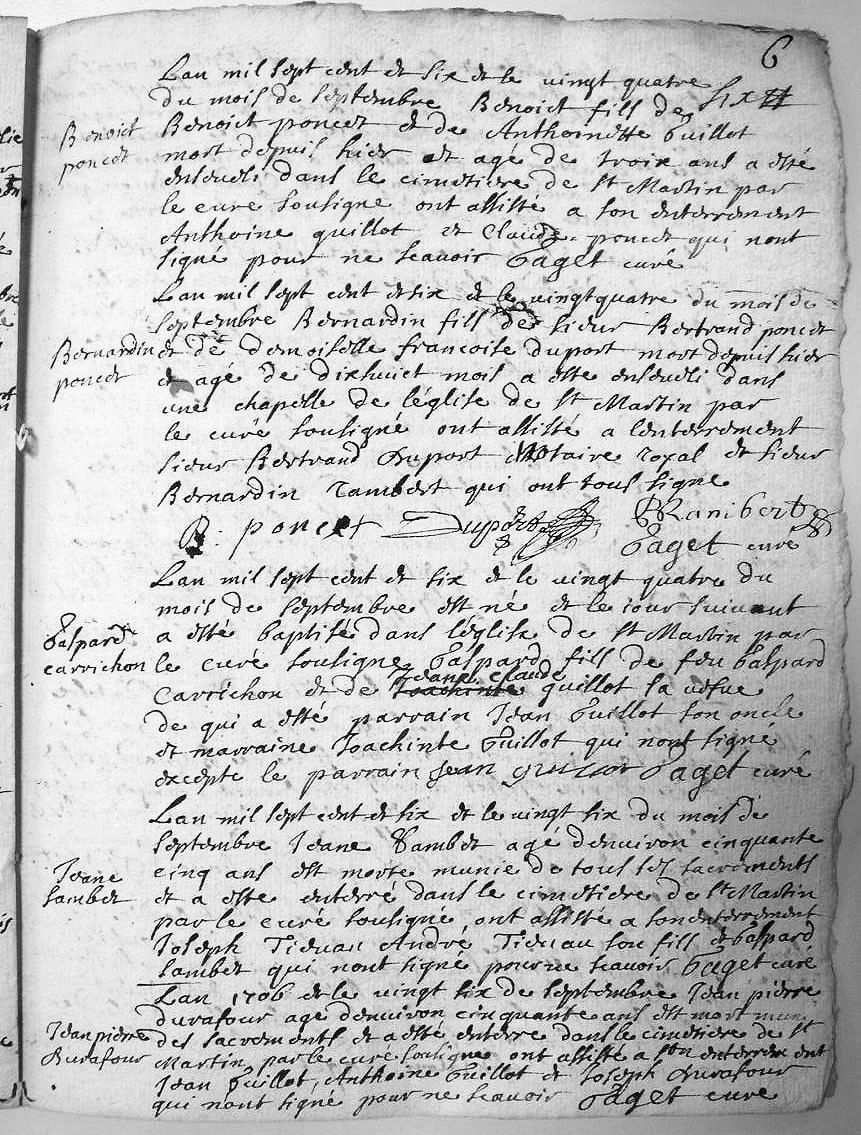 6
six
Benoict
poncet
Lan mil sept cent et six et le vingt quatre
du mois de septembre Benoict fils de
Benoict poncet et de Anthoinette Guillot
mort depuis hier et agé de troix ans a esté
enseueli dans le cimetiere de st Martin par
le curé soubsigné ont assisté a son enterrement
Anthoine guillot et Claude poncet qui nont
signé pour ne scauoir Gaget curé
Bernardin
poncet
Lan mil sept cent et six et le vingtquatre du mois de
septembre Bernardin fils de sieur Bertrand poncet
et de demoiselle francoise duport mort depuis hier
et agé de dixhuict mois a esté enseueli dans
une chapelle de léglise de st Martin par
le curé sousigné ont assisté a lenterrement
sieur Bertrand Duport Notaire royal et sieur
Bernardin rambert qui ont tous signe
B. poncet Duport Rambert
Gaget curé
Gaspard
carrichon
Lan mil sept cent et six et le vingt quatre du
mois de septembre est né et le iour suiuant
a esté baptisé dans léglise de st Martin par
le curé sousigné Gaspard fils de feu Gaspard
jeane claude
Carrichon et de Joachinte guillot sa vefue
de qui a esté parrain Jean Guillot son oncle
et marraine Joachinte Guillot qui nont signe
excepte le parrain jean guillot Gaget curé
Jeane
Lambet
Lan mil sept cent et six et le vingt six du mois de
septembre Jeane Lambet agé denuiron cinquante
cinq ans est morte munie de tous ses sacrements
et a esté enterré dans le cimetiere de st Martin
par le curé sousigné ont assisté a son enterrement
Joseph Tieuan André Tieuau son fils et Gaspard
Lambet qui nont signé pour ne scauoir Gaget curé
Jean pierre
Durafour
Lan 1706 et le vingt six de septembre Jean pierre
durafour agé denuiron cinquante ans est mort muni
des sacrements et a esté enterre dans le cimetiere de st
Martin par le curé sousigne ont assisté a son enterrement
Jean Guillot, Anthoine Guillot et Joseph Durafour
qui nont signé pour ne scauoir Gaget curé